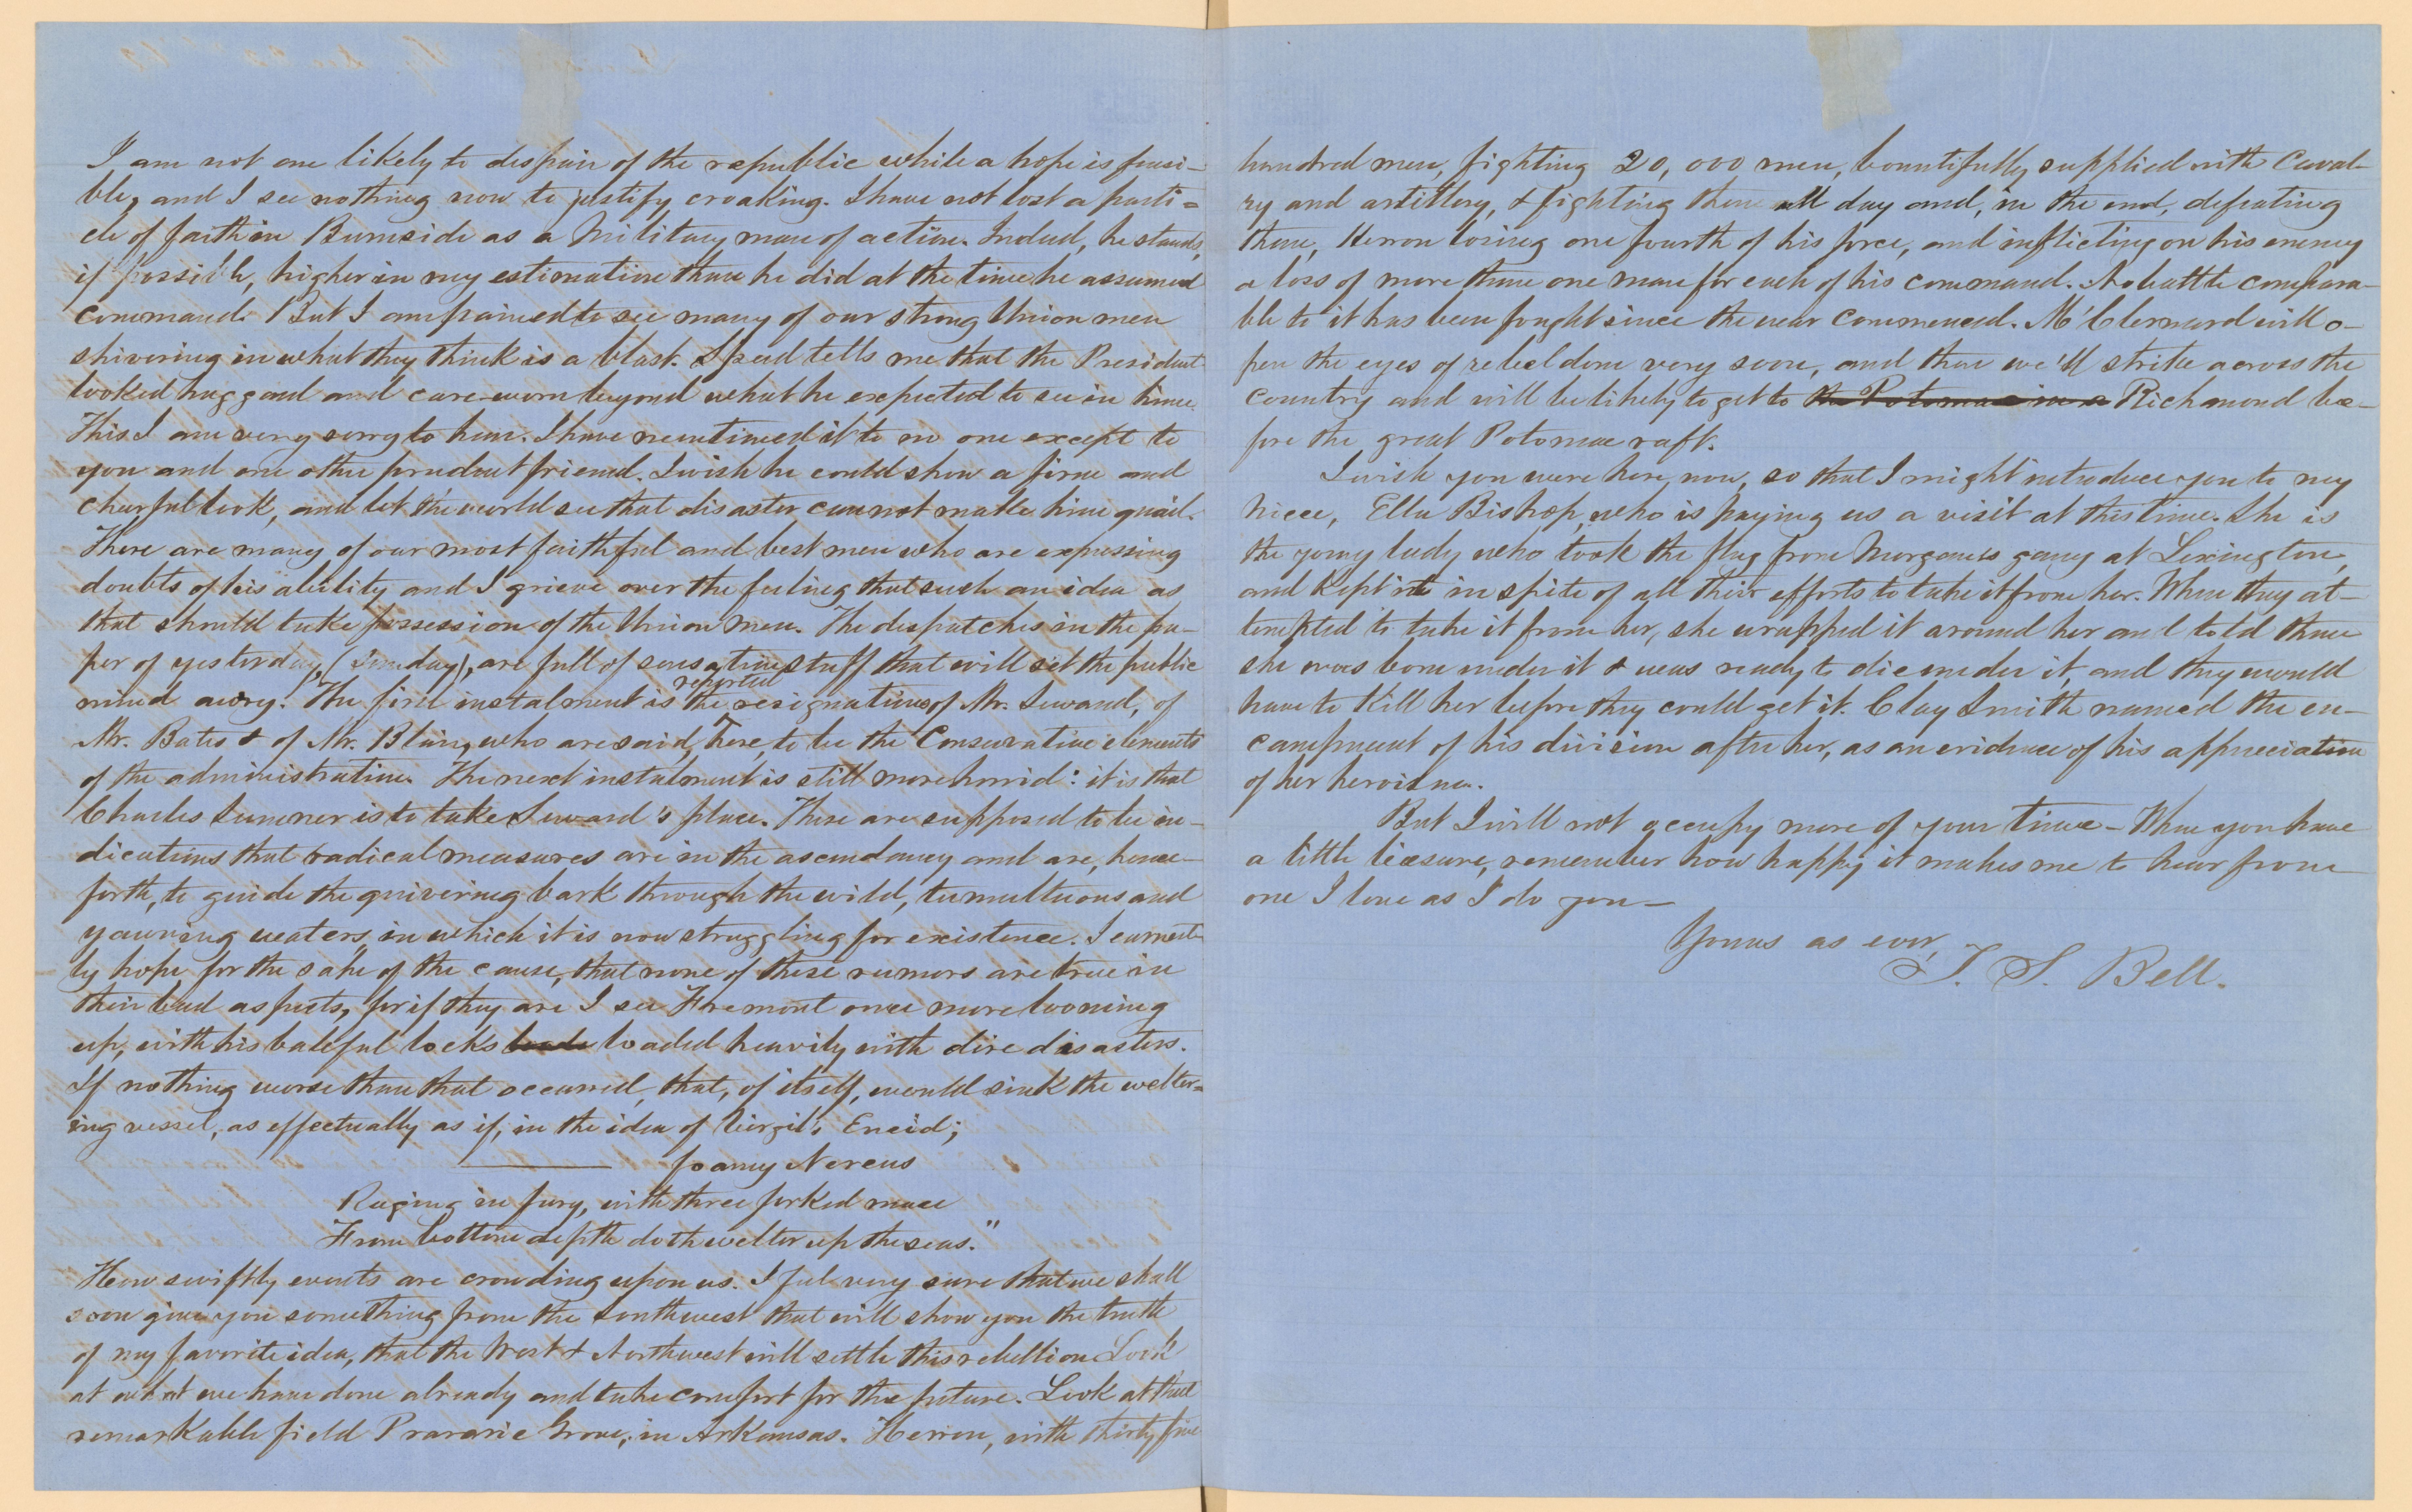 I am not one likely to despair of the republic while a hope is possi-
ble, and I see nothing now to justify croaking. I have not lost a parti=
cle of faith in Burnside as a Military man of action. Indeed, he stands,
if possible, higher in my estimation than he did at the time he assumed
command. But I am pained to see many of our strong Union men
shivering in what they think is a blast. Speed tells me that the President
looked haggard and care-worn beyond what he expected to see in him.
This I am very sorry to hear. I have mentioned it to no one except to
you and one other prudent friend. I wish he could show a firm and
cheerful look, and let the world see that disaster can not make him quail.
There are many of our most faithful and best men who are expressing
doubts of his ability and I grieve over the feeling that such an idea as
that should take possession of the Union men. The despatches in the pa-
per of yesterday, (Sunday), are full of sensation stuff that will set the public
mind awry. The first instalment is the reported resignations of Mr. Seward, of
Mr. Bates & of Mr. Blair, who are said, here, to be the Conservative elements
of the administration. The next instalment is still more horrid: it is that
Charles Sumner is to take Seward's place. These are supposed to be in-
dications that radical measures are in the ascendancy and are, hence-
forth, to guide the quivering bark through the wild, tumultuous and
yawning waters in which it is now struggling for existence. I earnest-
ly hope for the sake of the cause, that none of these rumors are true in
their bad aspects, for if they are I see Fremont once more looming
up, with his baleful locks loaded heavily with dire disasters.
If nothing worse than that occurred, that, of itself, would sink the welter=
ing vessel, as effectually as if, in the idea of Virgil's Eneid;
foamy Nereus
Raging in fury, with three forked mace
From bottom depth doth welter up the seas."
How swiftly events are crowding upon us. I feel very sure that we shall
soon give you something from the Southwest that will show you the truth
of my favorite idea, that the West & Northwest will settle this rebellion. Look
at what we have done already and take comfort for the future. Look at that
remarkable field Prararie Grove, in Arkansas. Herron, with thirty five
hundred men, fighting 20,000 men, bountifully supplied with Caval-
ry and artillery, & fighting them all day and, in the end, defeating
them, Herron losing one fourth of his force, and inflicting on his enemy
a loss of more than one man for each of his command. No battle compara-
ble to it has been fought since the war commenced. M'Clernard will o-
pen the eyes of rebeldom very soon, and then we'll strike across the
country and will be likely to get to the Potomac in a Richmond be-
fore the great Potomac raft.
I wish you were here, now, so that I might introduce you to my
niece, Ella Bishop, who is paying us a visit at this time. She is
the young lady who took the flag from Morgan's gang at Lexington,
and kept it in spite of all their efforts to take it from her. When they at-
tempted to take it from her, she wrapped it around her and told them
she was born under it & was ready to die under it, and they would
have to kill her before they could get it. Clay Smith named the en-
campment of his division after her, as an evidence of his appreciation
of her heroism.
But I will not occupy more of your time - When you have
a little liesure, remember how happy it makes me to hear from
one I love as I do you -
Yours as ever,
T. S. Bell.